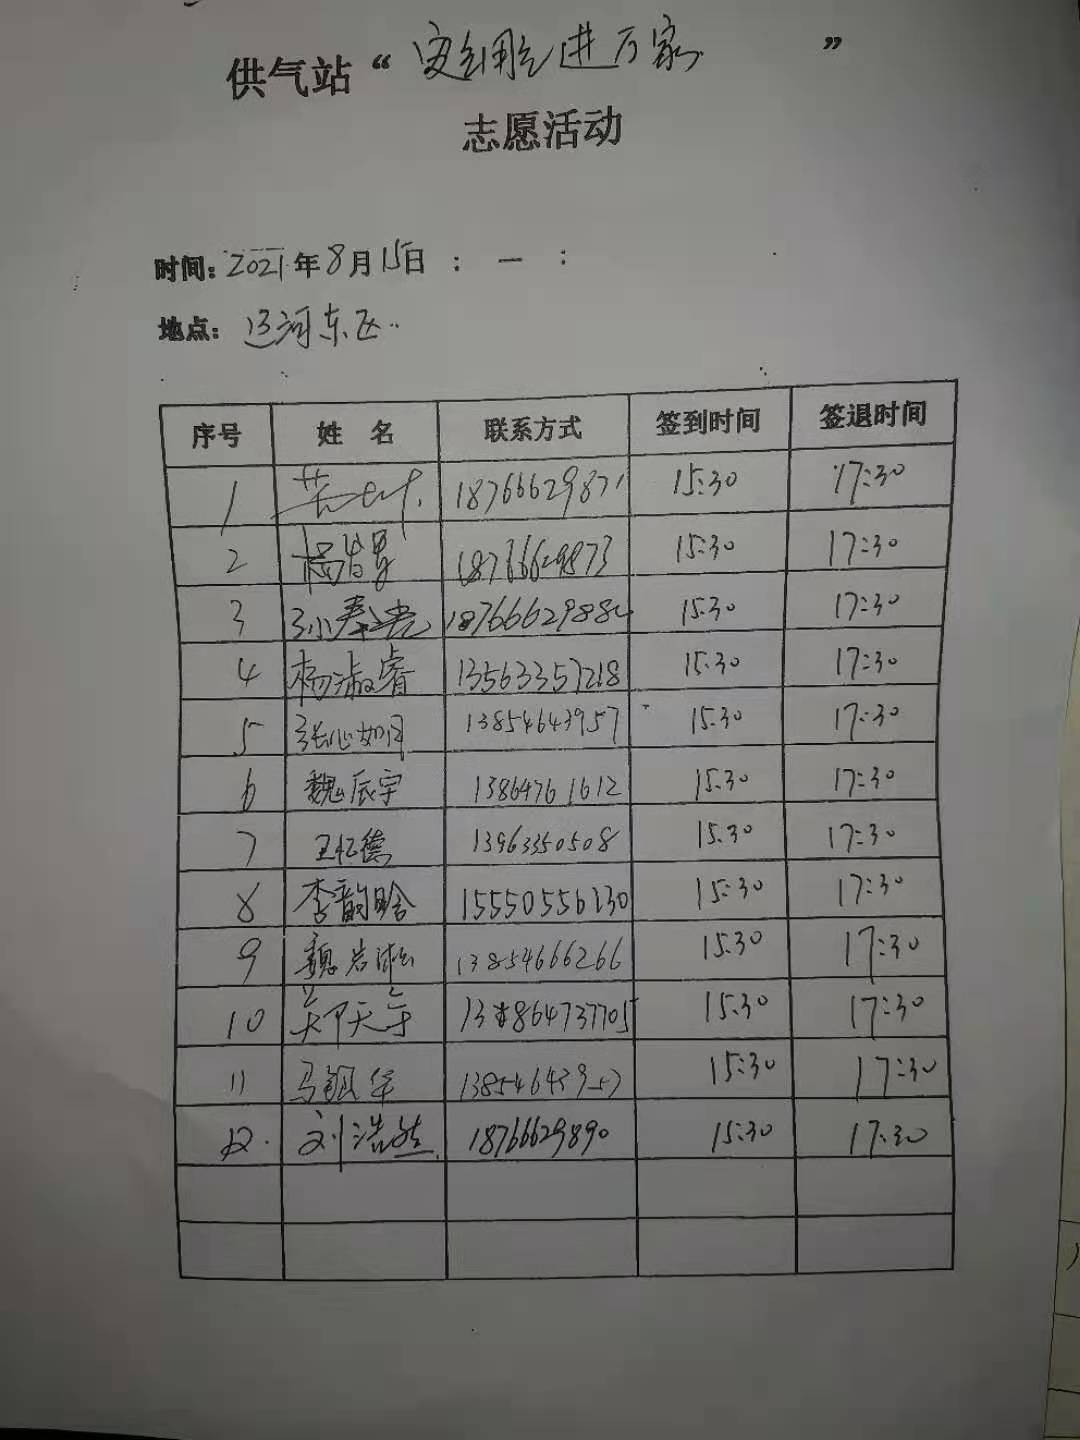 供气站“安全用气进万家”
志愿活动
时间：2021年8月15日 ： — ：
地点：辽河东区
序号 姓 名 联系方式 签到时间 签退时间
1 18766629871 15:30 17:30
2 18766629873 15:30 17:30
3 孙春光 1876662988 15:30 17:30
4 杨淑睿 13563357218 15:30 17:30
5 张心如月 13854643957 15:30 17:30
6 魏辰宇 13864761612 15:30 17:30
7 王忆德 13963350508 15:30 17:30
8 李韵晗 15550556130 15:30 17:30
9 魏岩淞 13854666266 15:30 17:30
10 13864737705 15:30 17:30
11 马银华 13854643957 15:30 17:30
12 刘浩然 18766629890 15:30 17:30